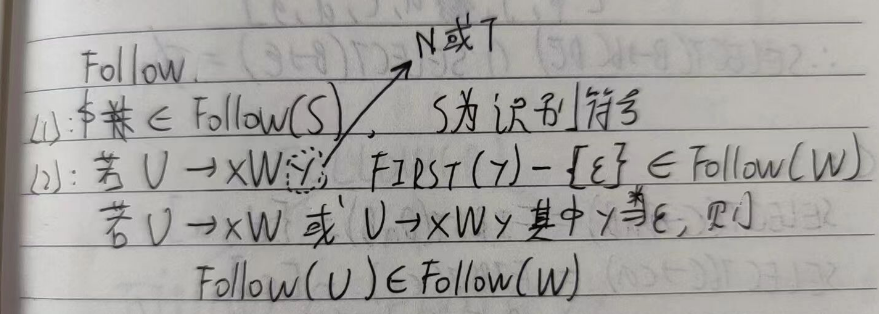 N或T
Follow.
(1): # ∈ Follow(S), S为识别符号
(2): 若 U → xWy, FIRST(y) - {ε} ∈ Follow(W)
若 U → xW 或 U → xWy 其中 y ⇒* ε, 则
Follow(U) ∈ Follow(W)